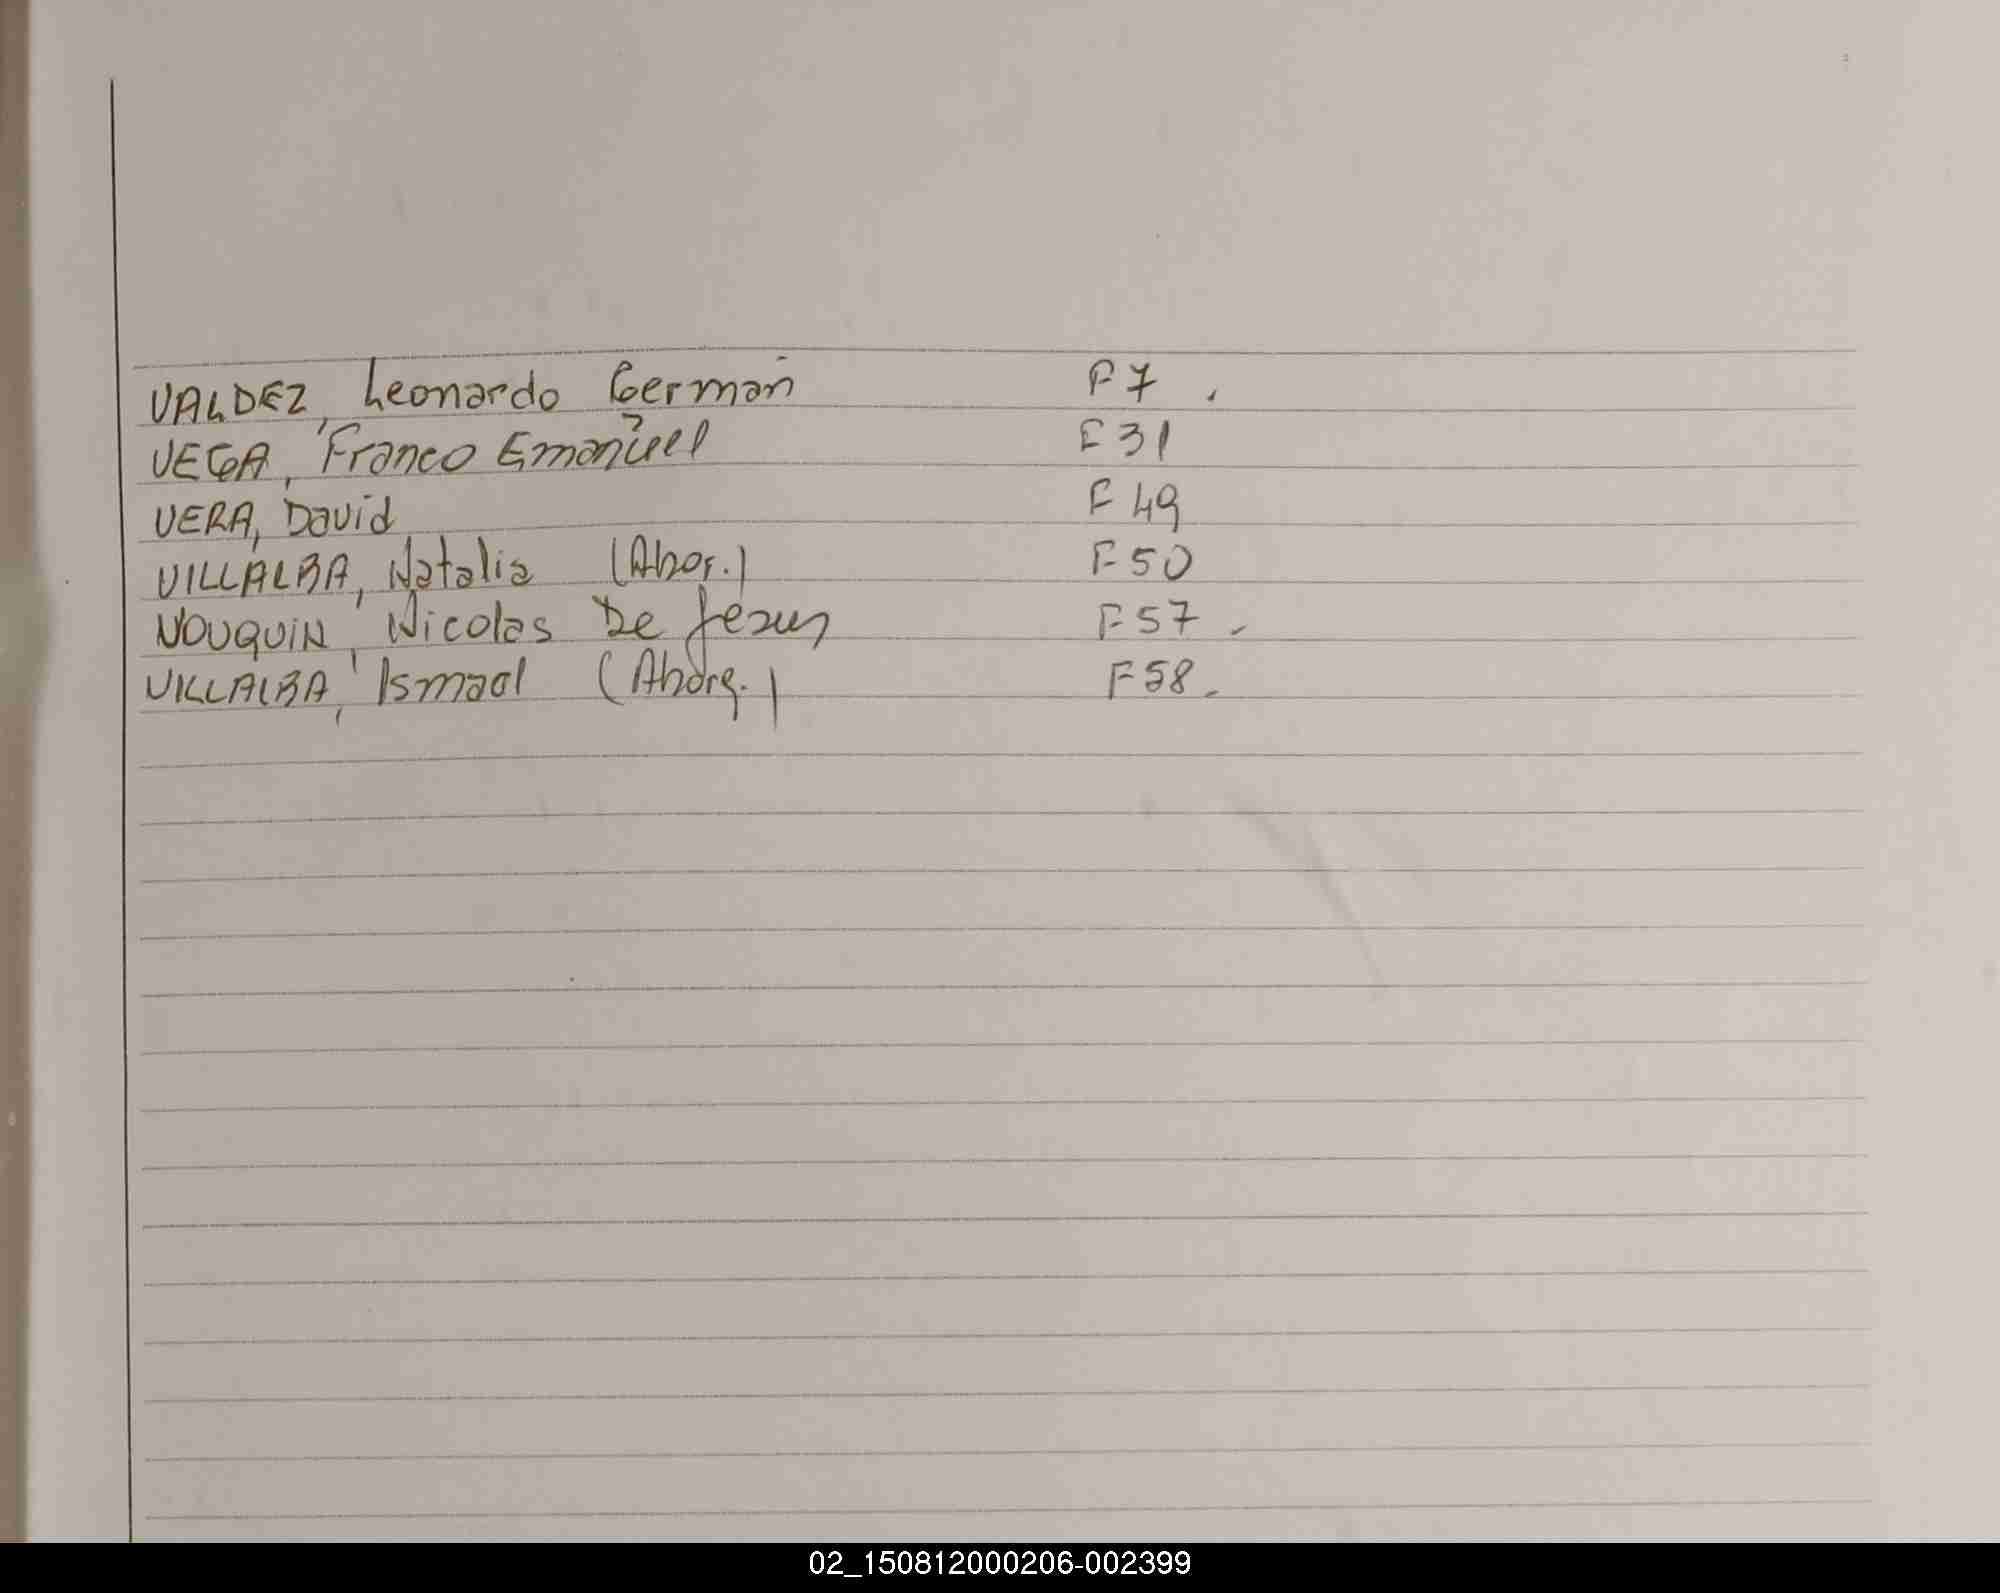 VALDEZ, Leonardo German F7.
VEGA, Franco Emanuel F31
VERA, David F49
VILLALBA, Natalia (Abor.) F50
NOUQUIN, Nicolas De Jesus F57.
VILLALBA, Ismael (Aborg.) F58.
02_150812000206-002399